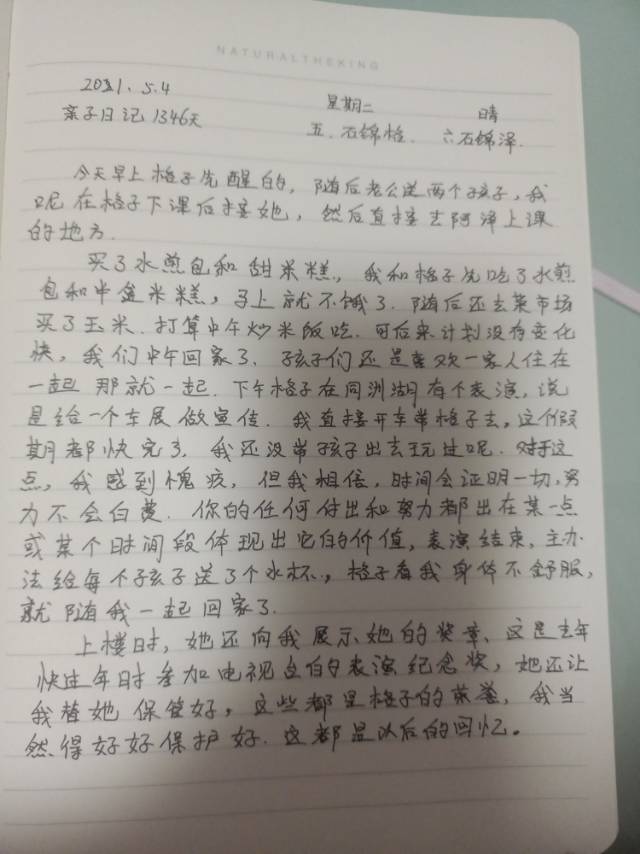 NATURALTHEKING
2021.5.4 星期二 晴
亲子日记1346天 五.石锦怡. 六石锦泽.
今天早上格子先醒的, 随后老公送两个孩子, 我
呢在格子下课后接她, 然后直接去阿泽上课
的地方.
买了水煎包和甜米糕, 我和格子先吃了水煎
包和半盒米糕, 马上就不饿了. 随后还去菜市场
买了玉米. 打算中午炒米饭吃. 可后来计划没有变化
快, 我们中午回家了. 孩子们还是喜欢一家人住在
一起 那就一起. 下午格子在同洲湖有个表演, 说
是给一个车展做宣传. 我直接开车带格子去, 这个假
期都快完了, 我还没带孩子出去玩过呢. 对于这
点, 我感到愧疚, 但我相信, 时间会证明一切, 努
力不会白费. 你的任何付出和努力都出在某一点
或某个时间段体现出它的价值, 表演结束, 主办
法给每个孩子送了个水杯, 格子看我身体不舒服,
就随我一起回家了.
上楼时, 她还向我展示她的奖章、这是去年
快过年时参加电视台的表演纪念奖, 她还让
我替她保管好, 这些都是格子的荣誉, 我当
然得好好保护好. 这都是以后的回忆。